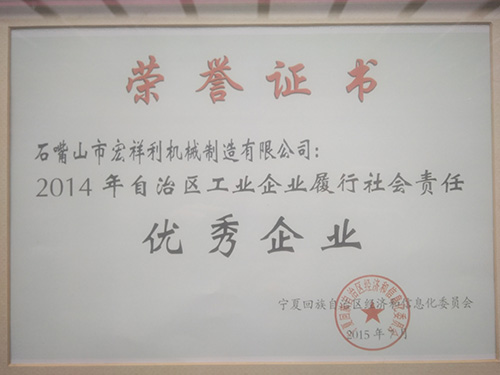 荣誉证书
石嘴山市宏祥利机械制造有限公司：
2014年自治区工业企业履行社会责任
优秀企业
宁夏回族自治区经济和信息化委员会
2015年 月